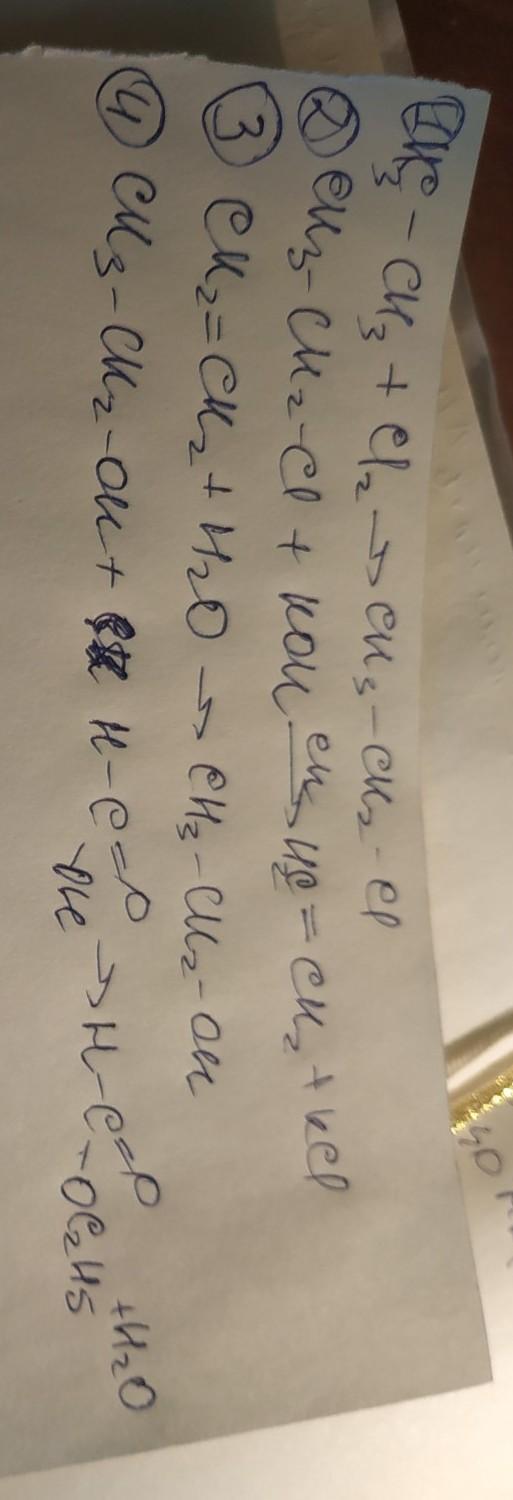 ① H3C - CH3 + Cl2 → CH3 - CH2 - Cl
② CH3 - CH2 - Cl + KOH → H2C = CH2 + KCl
③ CH2 = CH2 + H2O → CH3 - CH2 - OH
④ CH3 - CH2 - OH + H - C = O → H - C = O + H2O
OH - OC2H5
40